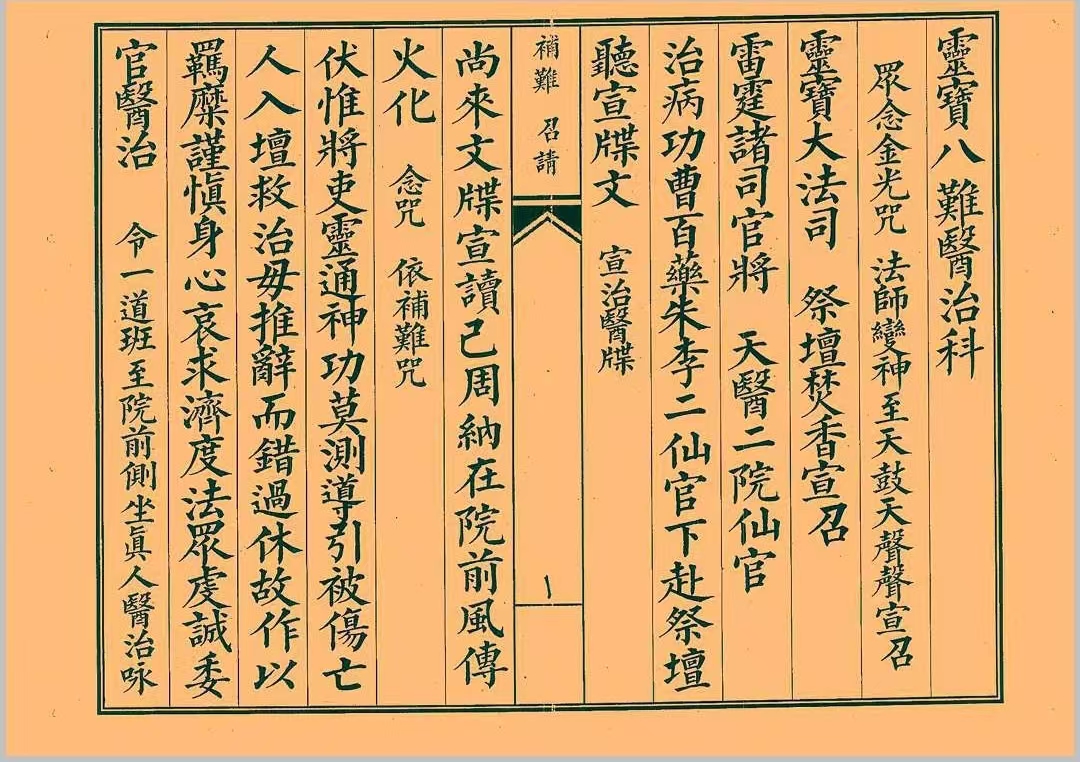 靈寶八難醫治科
眾念金光咒 法師變神至天鼓天聲聲宣召
靈寶大法司 祭壇焚香宣召
雷霆諸司官將 天醫二院仙官
治病功曹百藥朱李二仙官下赴祭壇
聽宣牒文 宣治醫牒
補難 召請
一
尚來文牒宣讀已周納在院前風傳
火化 念咒 依補難咒
伏惟將吏靈通神功莫測導引被傷亡
人入壇救治毋推辭而錯過休故作以
羈縻謹愼身心哀求濟度法眾虔誠委
官醫治 令一道班至院前側坐眞人醫治咏